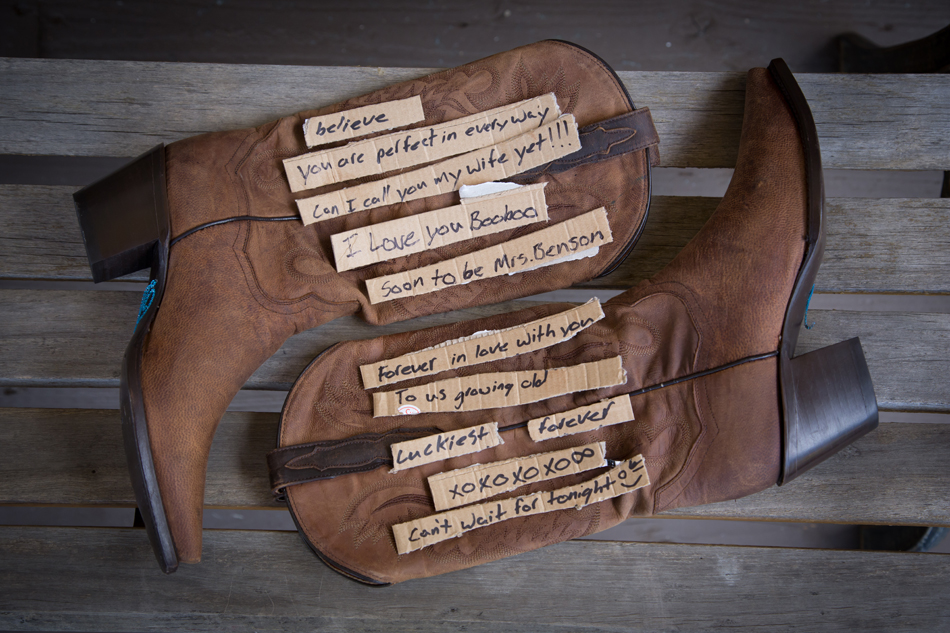 believe
you are perfect in every way
Can I call you my wife yet!!!
I Love you Booboo
Soon to be Mrs. Benson
Forever in love with you
To us growing old
Luckiest
forever
XOXOXOXO∞
Can't wait for tonight